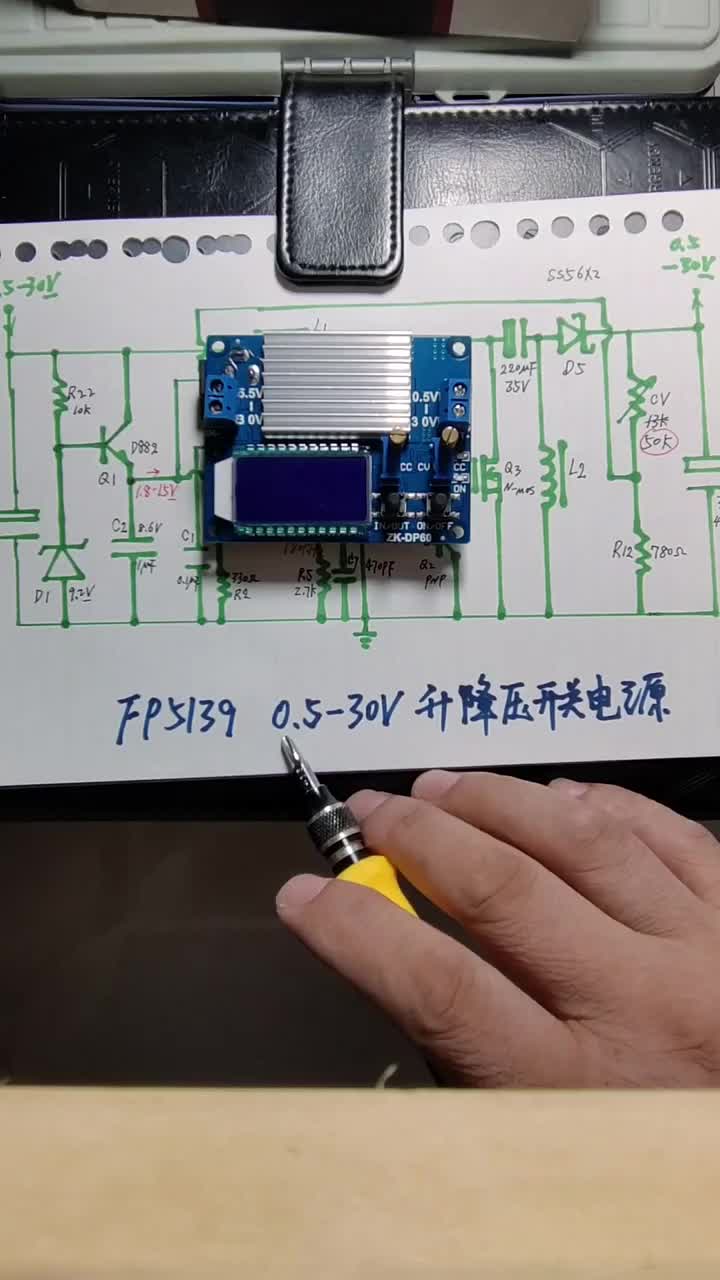 0.5
-30V
5-30V
SS56X2
L1
R22
10K
D882
Q1
1.8-15V
C2
8.6V
1μF
D1
9.2V
C1
0.1μF
330Ω
R2
R5
2.7K
470PF
Q2
PNP
5.5V
3 0V
0.5V
3 0V
CC
CV
CC
ON
IN/OUT
ON/OFF
ZK-DP60
220μF
35V
D5
Q3
N-mos
L2
CV
13K
50K
R12
780Ω
FP5139 0.5-30V 升降压开关电源